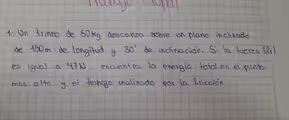 Trabajo final
1. Un trineo de 60kg descansa sobre un plano inclinado
de 150m de longitud y 30° de inclinación. Si la fuerza (fr)
es igual a 47N, encuentra la energía total en el punto
mas alto y el trabajo realizado por la fricción